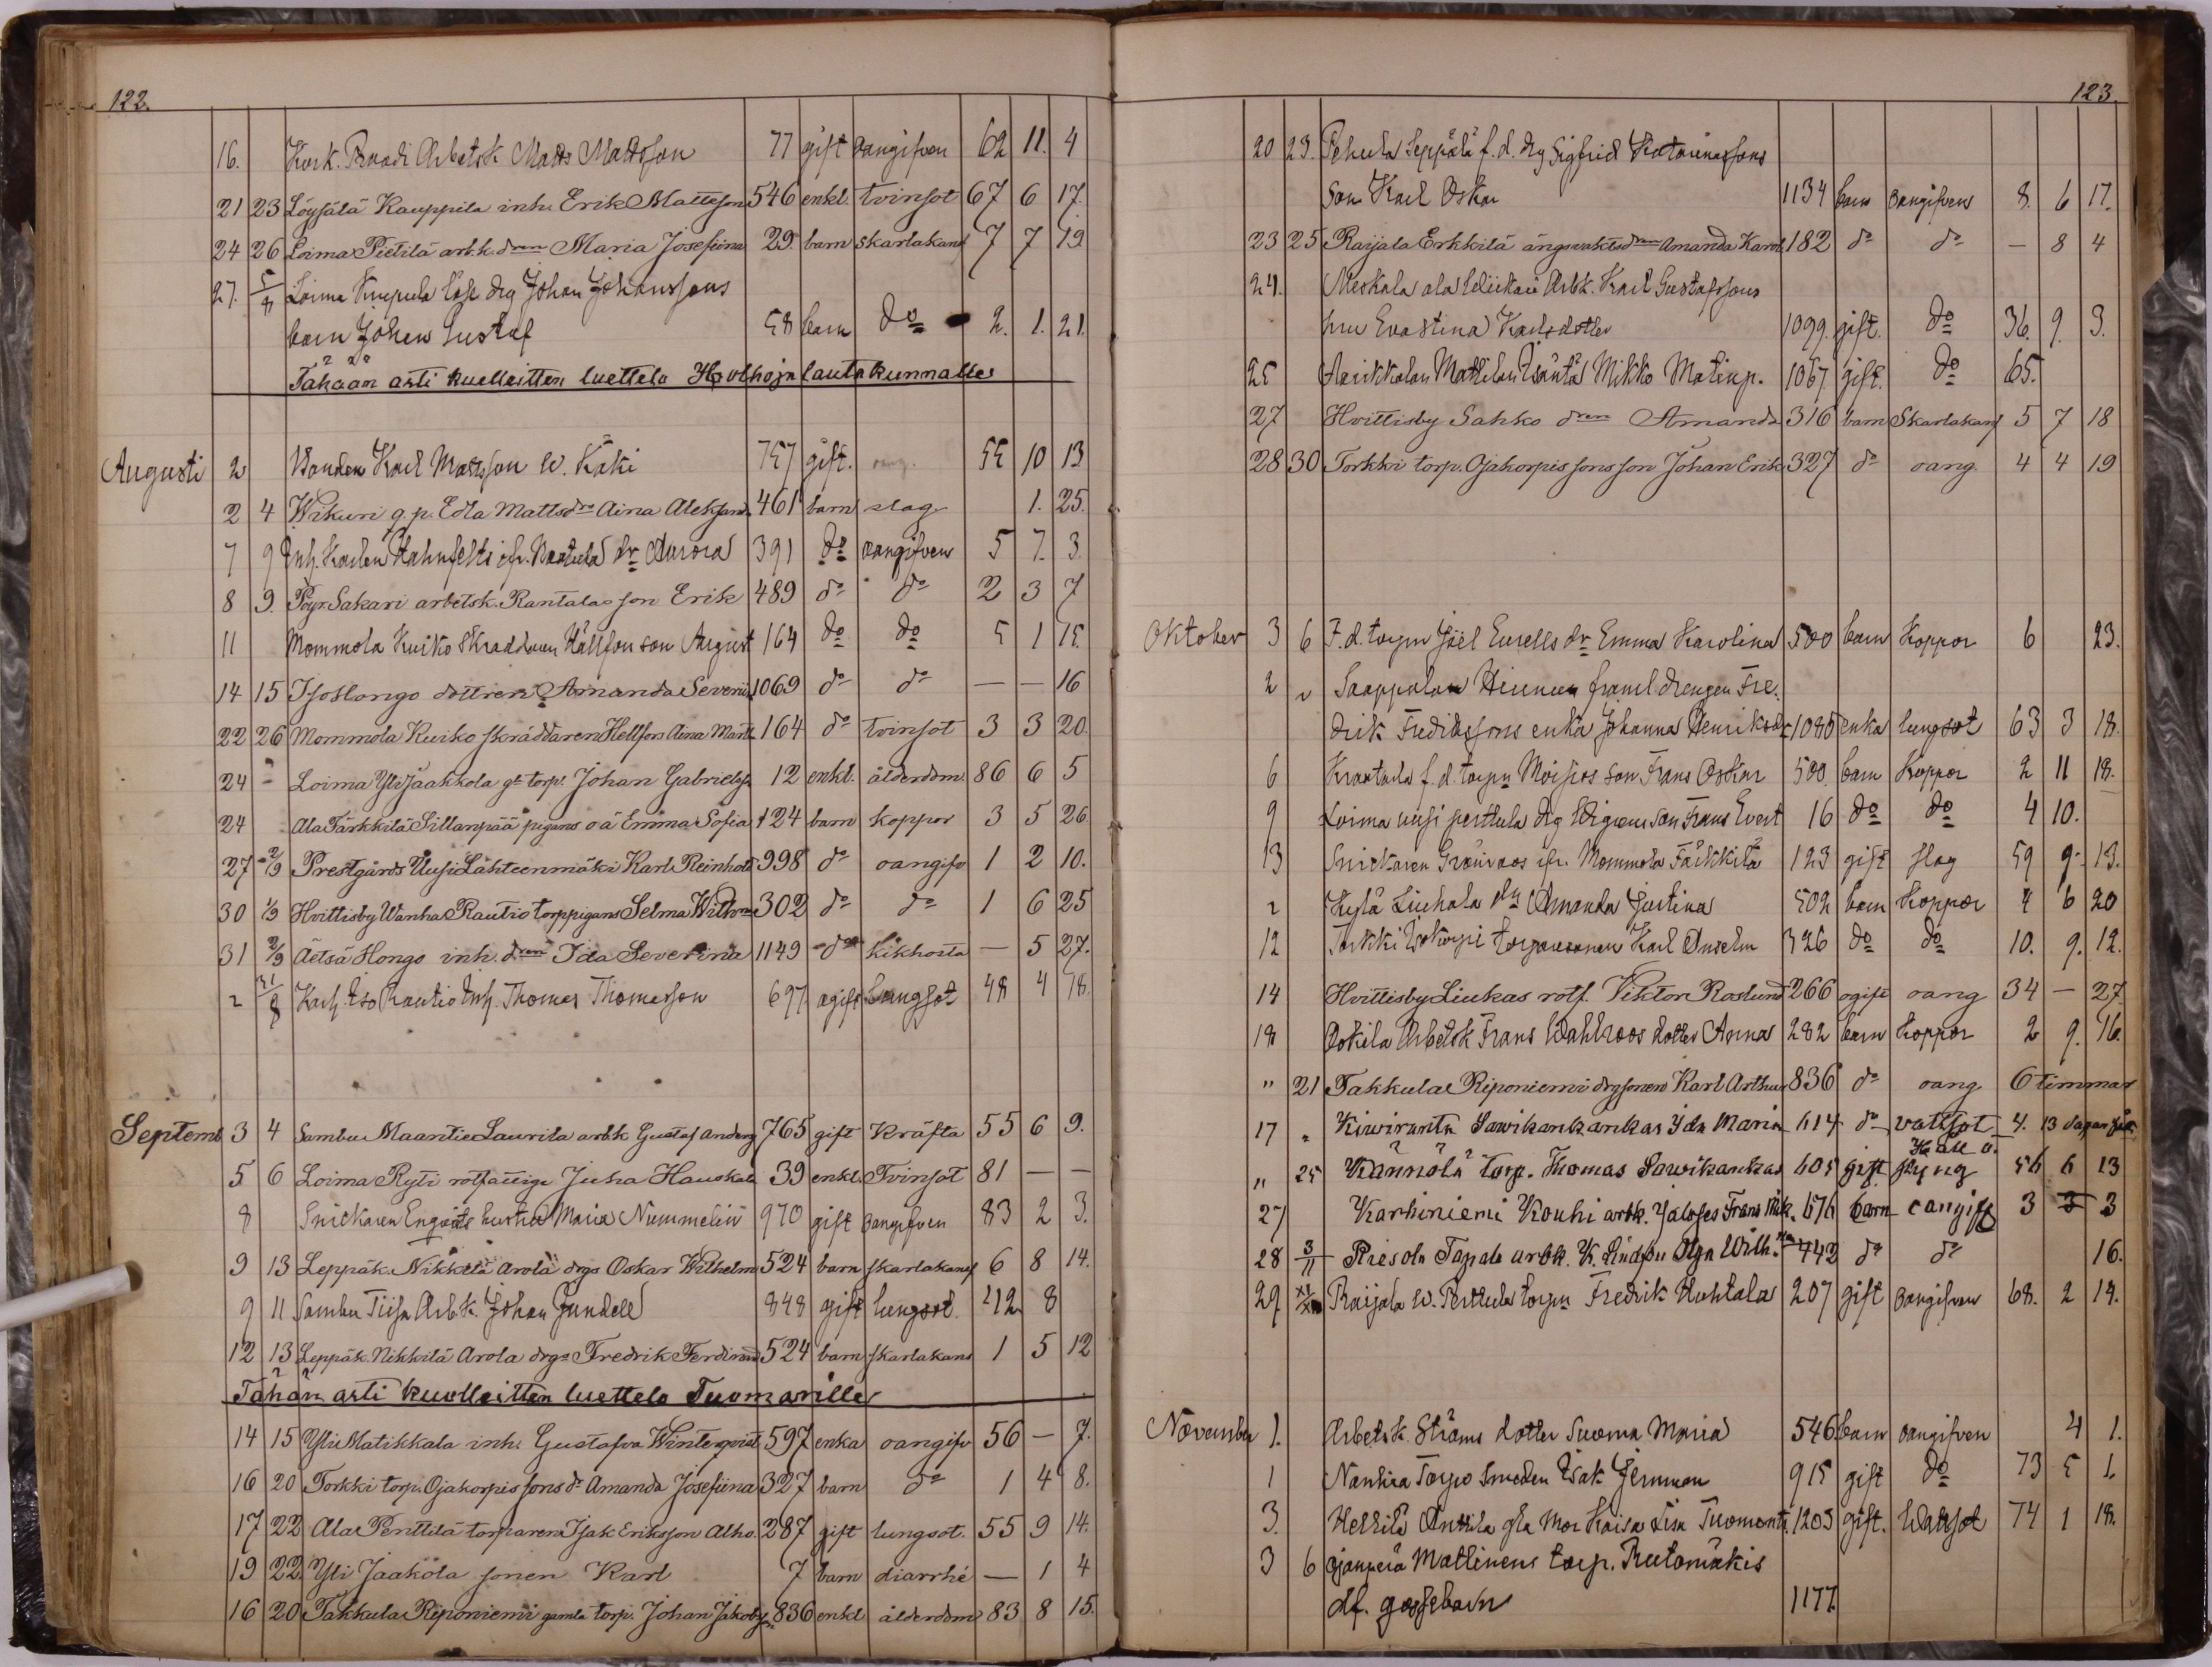 122.
16. Kark. Raadi Arbetsk Matts Mattsson 77 gift oangifven 62 11. 4
21 23 Löysälä Kauppila inh. Erik Mattsson 546 enkl. tvinsot 67 6 17.
24 26 Loima Pietilä arb.k. dren Maria Josefiina 29. barn skarlakansf 7 7 19
27. 5/8 Loima Knupula lösl drg Johan Johanssons
barn Johan Gustaf 58 barn do 2. 1. 21.
Tähään asti kuolleitten luettelo Holhojalautakunnalle
Augusti 2 Bonden Karl Mattsson W. Käki 757 gift. oang. 55 10 13
2 4 Wikuri q.p. Edla Mattsdrs Aina Aleksand. 461 barn slag 1. 25.
7 9 Inh. Karlen Hahnfelts ifr. Naatula dr Aurora 391 do oangifven 5 7. 3.
8 9. Pöyr. Sakari arbetsk. Rantalas son Erik 489 do do 2 3 7
11 Mommola Kuiko Skraddaren Hällfors son August 164 do do 5 1 15.
14 15 Isohongo dottren Amanda Severin. 1069 do do — — 16
22 26 Mommola Kuiko skräddaren Hellfors Aina Mart. 164 do tvinsot 3 3 20.
24 – Loima Yli Jaakkola gl. torp. Johan Gabrielss. 12 enkl. ålderdom. 86 6 5
24 Ala Färkkilä Sillanpää pigans oä Emma Sofia 124 barn koppor 3 5 26
27 2/9 Prestgårds Uusi Lähteenmäki Karl Reinhold 998 do oangifv 1 2 10.
30 1/9 Hvittisby Wanha Rautio torppigans Selma Wilh. 302 do do 1 6 25
31 2/9 Äetsä Hongo inh. dren Ida Severina 1149 do kikhosta — 5 27.
" 31/8 Karh. Iso Rautio Inh. Thomas Thomasson 697 ogift Lungsot 48 4 18.
Septemb 3 4 Sambu Maantie Laurila arbk Gustaf Anders 765 gift kräfta 55 6 9.
5 6 Loima Ryti rotfattige Juha Hauskala 39 enkl. Tvinsot 81 — —
8 Snickaren Engvists hustru Maria Nummelin 970 gift oangifven 83 2 3.
9 13 Leppäk. Nikkilä Arola drgs Oskar Wilhelm 524 barn skarlakansf 6 8 14.
9 11 Sambu Tiisa Arb.k. Johan Jundell 848 gift lungsot. 42 8
12 13 Leppäk. Nikkilä Arola drgs Fredrik Ferdinand 524 barn skarlakans 1 5 12
Tähän asti kuolleitten luettelo Tuomarille
14 15 Yli Matikkala inh. Gustafva Winterqvist 597 enka oangifv 56 — 7.
16 20 Torkki torp. Ojakorpis sons dr Amanda Josefiina 327 barn do 1 4 8.
17 22 Ala Penttilä torparen Isak Eriksson Alho. 287 gift lungsot. 55 9 14.
19 22. Yli Jaakola sonen Karl 7 barn diarrhé — 1 4
16 20 Takkula Riponiemi gamla torp. Johan Jakobss. 836 enkl ålderdom 83 8 15.
123.
20 23. Pehula Seppälä f.d. drg Sigfrid Katarinassons
Son Karl Oskar 1134 barn oangifven 8. 6 17.
23 25 Raijala Erkkilä ängsvaktsdren Amanda Karol. 182 do do — 8 4
24. Meskala ala Arbk. Karl Gustafssons
hru Evastina Karlsdotter 1099. gift. do 36. 9. 3.
25 Aarikkalan Mattilan Isäntä Mikko Matinp. 1067 gift. do 65.
27 Hvittisby Sahko dren Amanda 316 barn Skarlakansf 5 7 18
28 30 Torkki torp. Ojakorpis sons son Johan Erik 327 do oang. 4 4 19
Oktober 3 6 F.d. torpn Joel Eurells dr Emma Karolina 500 barn Koppor 6 23.
2 " Saappalan Hinnun framl. drengen Fre-
drik Fredikssons enka Johanna Henriksdr 1080 enka lungsot 63 3 18.
6 Kraatula f.d. torpn Moisios son Frans Oskar 500. barn Koppor 2 11 18.
9 Loima uusi perttula drg Wigrens son Frans Evert 16 do do 4 10.
13 Snickaren Granroos ifr. Mommola Färkkilä 123 gift slag 59 9. 13.
" Kylä Liuhala dr Amanda Justina 502 barn Koppor 4 6 20
12 Torkki Isokorpi torparsonen Karl Anselm 326 do do 10. 9. 12.
14 Hvittisby Liukas rotf. Viktor Roslund 266 ogift oang 34 — 27
18 Ookila Arbetsk Frans Wahlroos dotter Anna 282 barn Koppor 2 9. 16.
" 21 Takkula Riponiemi drgsonen Karl Arthur 836 do oang 6 timmar
17 " Kiwiranta Sawikankankas Ida Maria 614 do vattsot 4. 13 dagar
" 25 Kännölä torp. Thomas Sawikankas 605 gift 56 6 13
27 Karhiniemi Kouhi arbk. Jalofes Frans Mik. 676 barn oangifv 3 3 3
28 3/11 Riesola Tapala arbk. K. Lindfors Olga Wilh.na 442 do do 16.
29 Raijala W. Perttula torpn Fredrik Huhtala 207 gift oangifven 68. 2 14.
November 1. Arbetsk. Ströms dotter Suoma Maria 546. barn oangifven 4 1.
1 Nanhia Torpo Smeden Isak Jernman 915 gift do 73 5 1.
3. Heikilä Anttila gla Mor Kaisa Lisa Tuomont. 1203 gift. Wattsot 74 1 18.
3 6 Ojanperä Matlinens torp. Rutamäkis
df. gossebarn 1177.